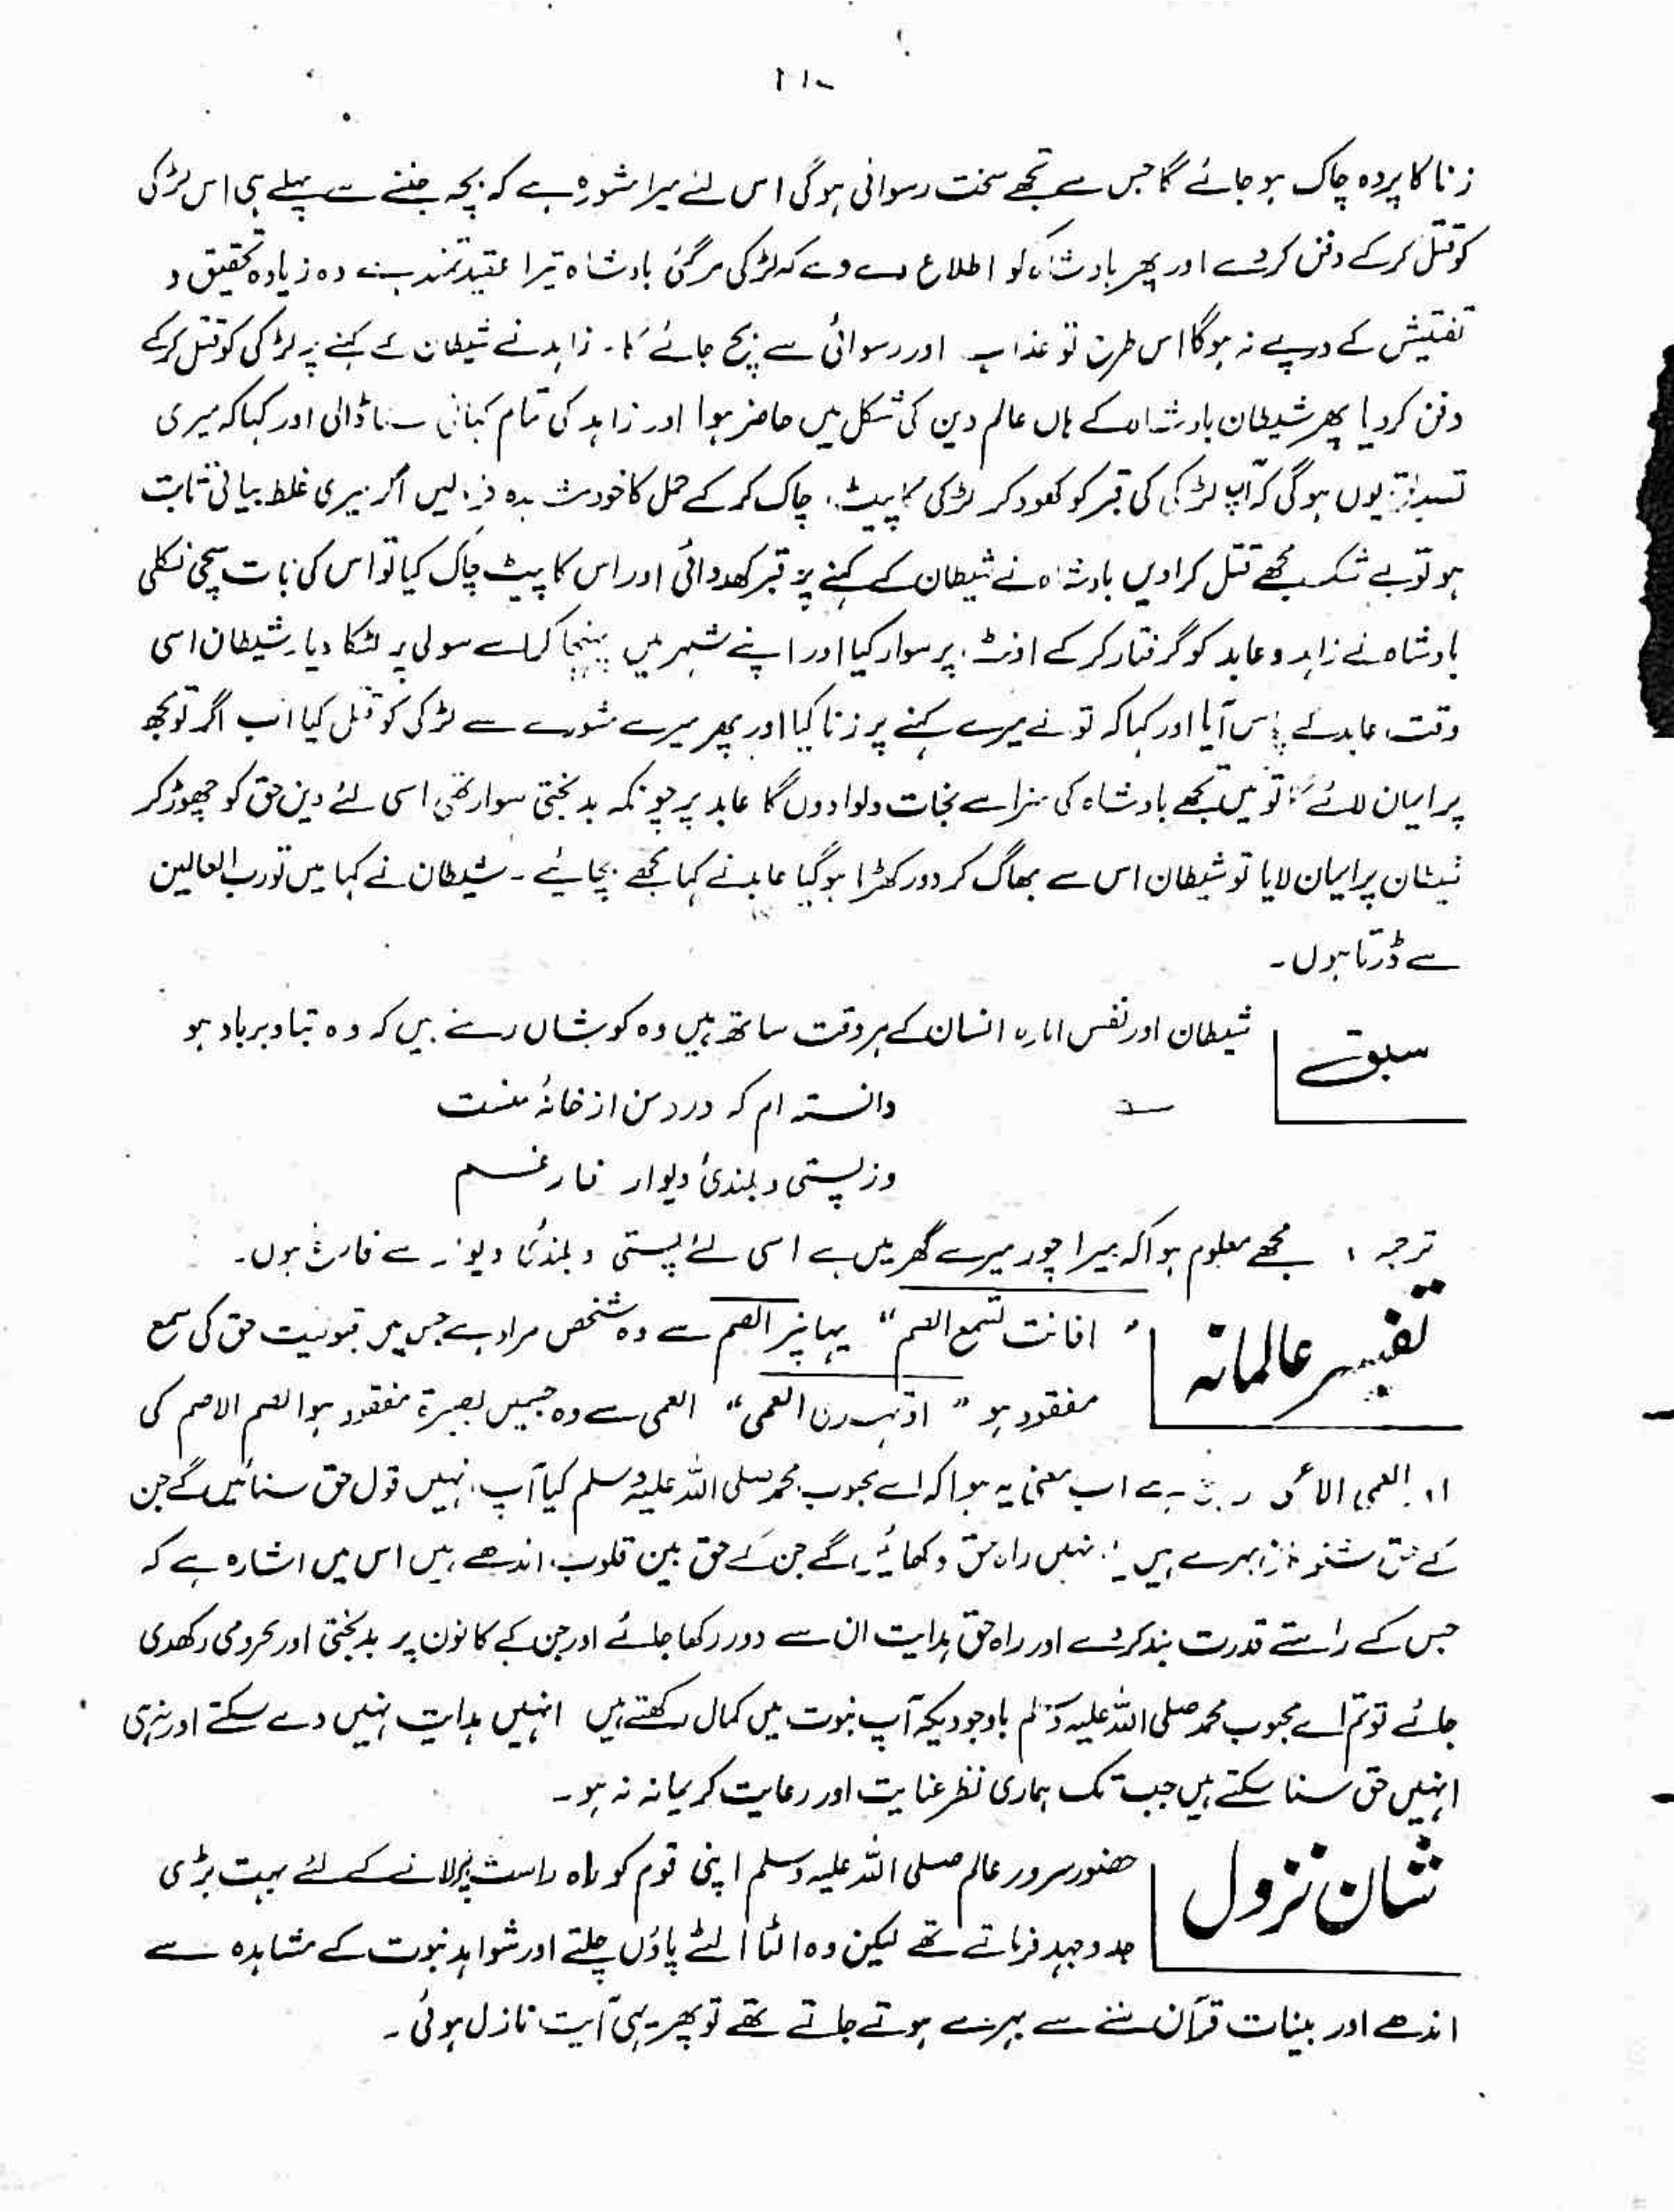 زنا کا پردہ چاک ہو جائے گا جس سے تجھے سخت رسوائی ہوگی اس لئے میرا مشورہ ہے کہ بچہ جننے سے پہلے ہی اس لڑکی
کو قتل کر کے دفن کر دے اور پھر بادشاہ کو اطلاع دے دے کہ لڑکی مر گئی بادشاہ تیرا عقیدتمند ہے وہ زیادہ تحقیق و
تفتیش کے درپے نہ ہوگا اس طرح تو عذاب اور رسوائی سے بچ جائے گا۔ زاہد نے شیطان کے کہنے پر لڑکی کو قتل کر کے
دفن کر دیا پھر شیطان بادشاہ کے ہاں عالم دین کی شکل میں حاضر ہوا اور زاہد کی تمام کہانی سنا ڈالی اور کہا کہ میری
یوں ہوگی کہ آپ لڑکی کی قبر کو کھود کر لڑکی کا پیٹ چاک کر کے حمل کا خود لیں اگر میری غلط بیانی ثابت
ہو تو بے شک مجھے قتل کرا دیں بادشاہ نے شیطان کے کہنے پر قبر کھدوائی اور اس کا پیٹ چاک کیا تو اس کی بات سچی نکلی
بادشاہ نے زاہد و عابد کو گرفتار کر کے اونٹ پر سوار کیا اور اپنے شہر میں پہنچا کر اسے سولی پر لٹکا دیا۔ شیطان اسی
وقت عابد کے پاس آیا اور کہا کہ تو نے میرے کہنے پر زنا کیا اور پھر میرے مشورے سے لڑکی کو قتل کیا اب اگر تو مجھ
پر ایمان لائے تو میں تجھے بادشاہ کی سزا سے نجات دلوا دوں گا عابد پر چونکہ بدبختی سوار تھی اسی لئے دین حق کو چھوڑ کر
شیطان پر ایمان لایا تو شیطان اس سے بھاگ کر دور کھڑا ہو گیا عابد نے کہا مجھے بچائیے۔ شیطان نے کہا میں تو رب العالمین
سے ڈرتا ہوں۔
سبق شیطان اور نفس امارہ انسان کے ہر وقت ساتھ ہیں وہ کوشاں رہتے ہیں کہ وہ تباہ و برباد ہو
دانستہ ام کہ دزد من از خانۂ منست
وز پستی و بلندیٔ دیوار فارغم
ترجمہ : مجھے معلوم ہوا کہ میرا چور میرے گھر میں ہے اسی لئے پستی و بلندی دیوار سے فارغ ہوں۔
تفسیر عالمانہ " افانت تسمع الصم " یہاں پر الصم سے وہ شخص مراد ہے جس میں قبولیت حق کی سمع
مفقود ہو " اوتہدی العمی " العمی سے وہ جسمیں بصیرۃ مفقود ہو الصم الاصم کی
اور العمی الاعمی ہے اب معنی یہ ہوا کہ اے محبوب محمد صلی اللہ علیہ وسلم کیا آپ انہیں قول حق سنائیں گے جن
کے حق بہرے ہیں یا انہیں راہ حق دکھائیں گے جن کے حق بین قلوب اندھے ہیں اس میں اشارہ ہے کہ
جس کے راستے قدرت بند کر دے اور راہ حق ہدایت ان سے دور رکھا جائے اور جن کے کانوں پر بدبختی اور محرومی رکھدی
جائے تو تم اے محبوب محمد صلی اللہ علیہ وسلم باوجودیکہ آپ نبوت میں کمال رکھتے ہیں انہیں ہدایت نہیں دے سکتے اور نہ ہی
انہیں حق سنا سکتے ہیں جب تک ہماری نظر عنایت اور رعایت کریمانہ نہ ہو۔
شان نزول حضور سرور عالم صلی اللہ علیہ وسلم اپنی قوم کو راہ راست پر لانے کے لئے بہت بڑی
جدوجہد فرماتے تھے لیکن وہ الٹا الٹے پاؤں چلتے اور شواہد نبوت کے مشاہدہ سے
اندھے اور بینات قرآن سننے سے بہرے ہوتے جاتے تھے تو پھر یہی آیت نازل ہوئی۔